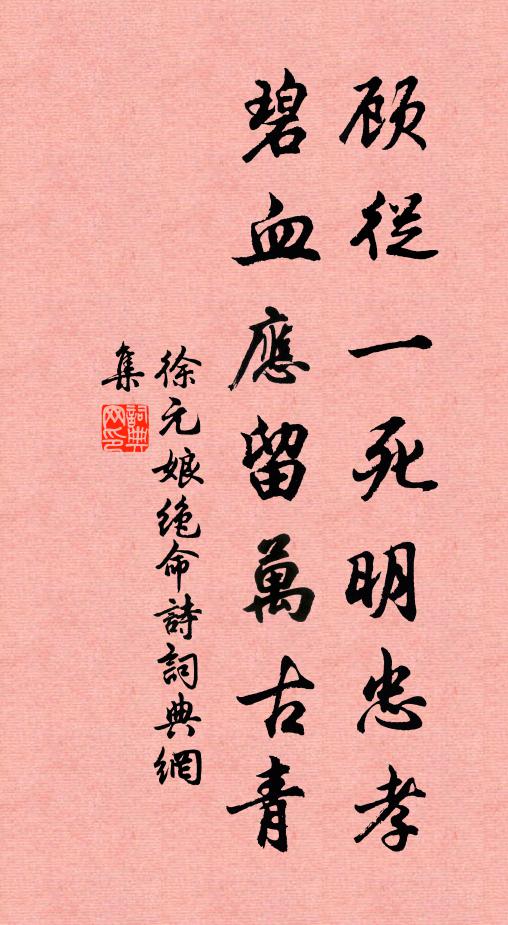 顧從一死明忠孝
碧血應留萬古青
徐元娘绝命詩詞典網
集
詞典
网印